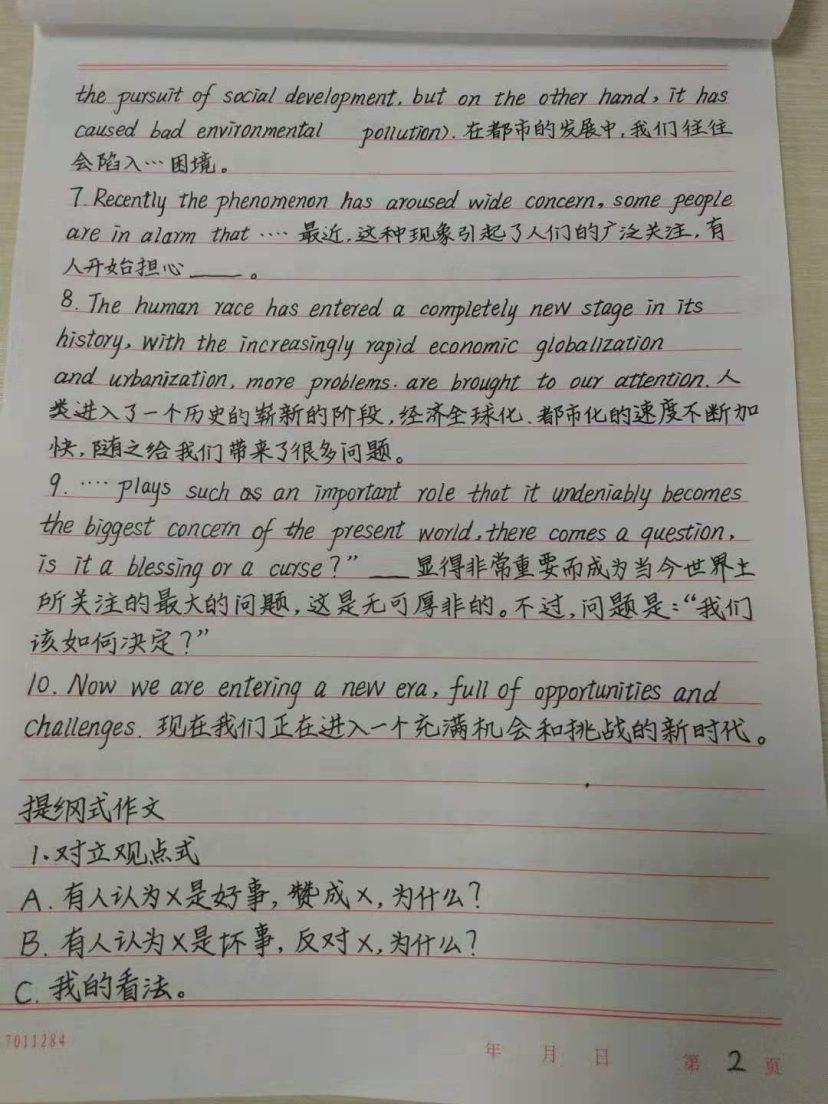 the pursuit of social development, but on the other hand, it has
caused bad environmental pollution). 在都市的发展中,我们往往
会陷入…困境。
7. Recently the phenomenon has aroused wide concern, some people
are in alarm that ···· 最近,这种现象引起了人们的广泛关注,有
人开始担心____。
8. The human race has entered a completely new stage in its
history, with the increasingly rapid economic globalization
and urbanization, more problems. are brought to our attention. 人
类进入了一个历史的崭新的阶段,经济全球化、都市化的速度不断加
快,随之给我们带来了很多问题。
9. ···· plays such as an important role that it undeniably becomes
the biggest concern of the present world, there comes a question,
is it a blessing or a curse?" ____显得非常重要而成为当今世界上
所关注的最大的问题,这是无可厚非的。不过,问题是:“我们
该如何决定?”
10. Now we are entering a new era, full of opportunities and
challenges. 现在我们正在进入一个充满机会和挑战的新时代。
提纲式作文
1、对立观点式
A. 有人认为X是好事,赞成X,为什么?
B. 有人认为X是坏事,反对X,为什么?
C. 我的看法。
7011284
年 月 日 第 2 页